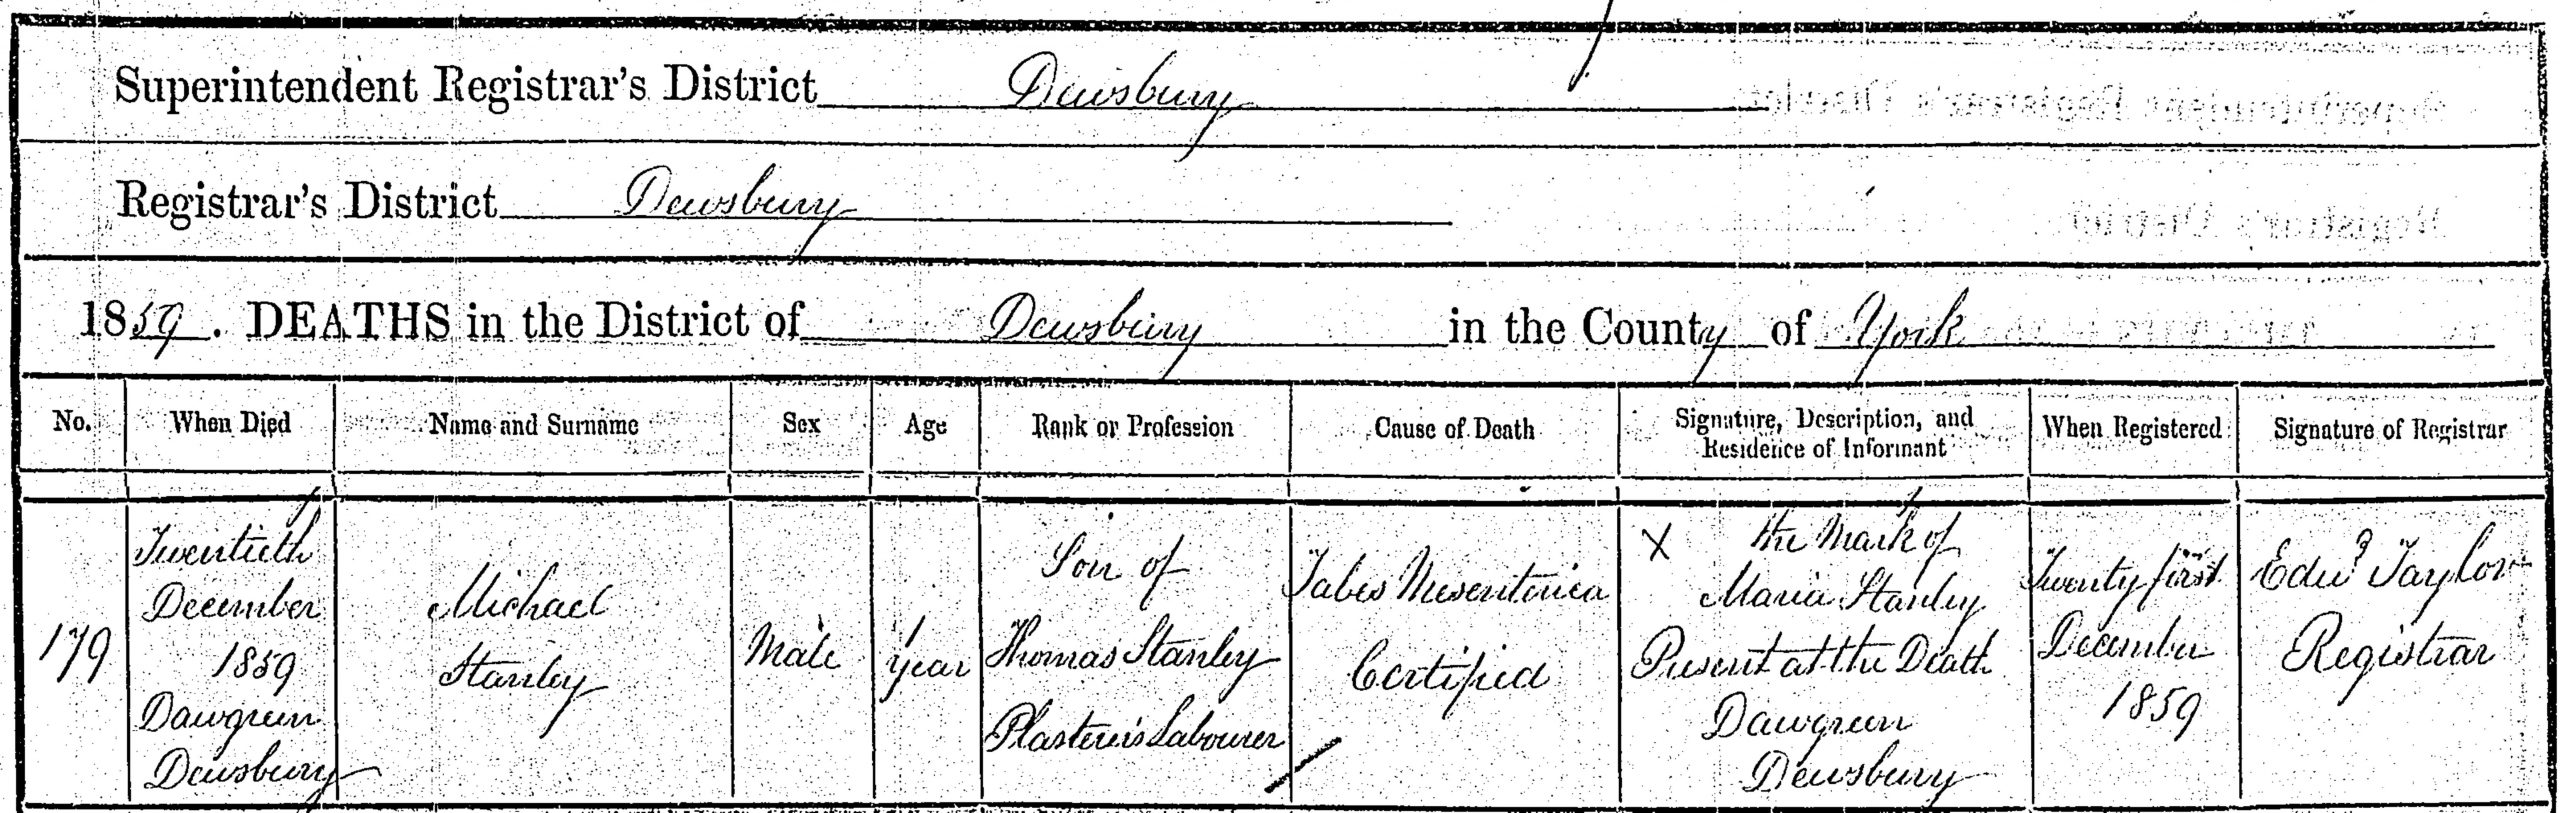 Superintendent Registrar's District Dewsbury
Registrar's District Dewsbury
1859. DEATHS in the District of Dewsbury in the County of York
No. When Died Name and Surname Sex Age Rank or Profession Cause of Death Signature, Description, and Residence of Informant When Registered Signature of Registrar
179
Twentieth
December
1859
Dawgreen
Dewsbury
Michael
Stanley
Male
1
year
Son of
Thomas Stanley
Plasterer's Labourer
Tabes Mesenterica
Certified
X the Mark of
Maria Stanley
Present at the Death
Dawgreen
Dewsbury
Twenty first
December
1859
Edwd Taylor
Registrar